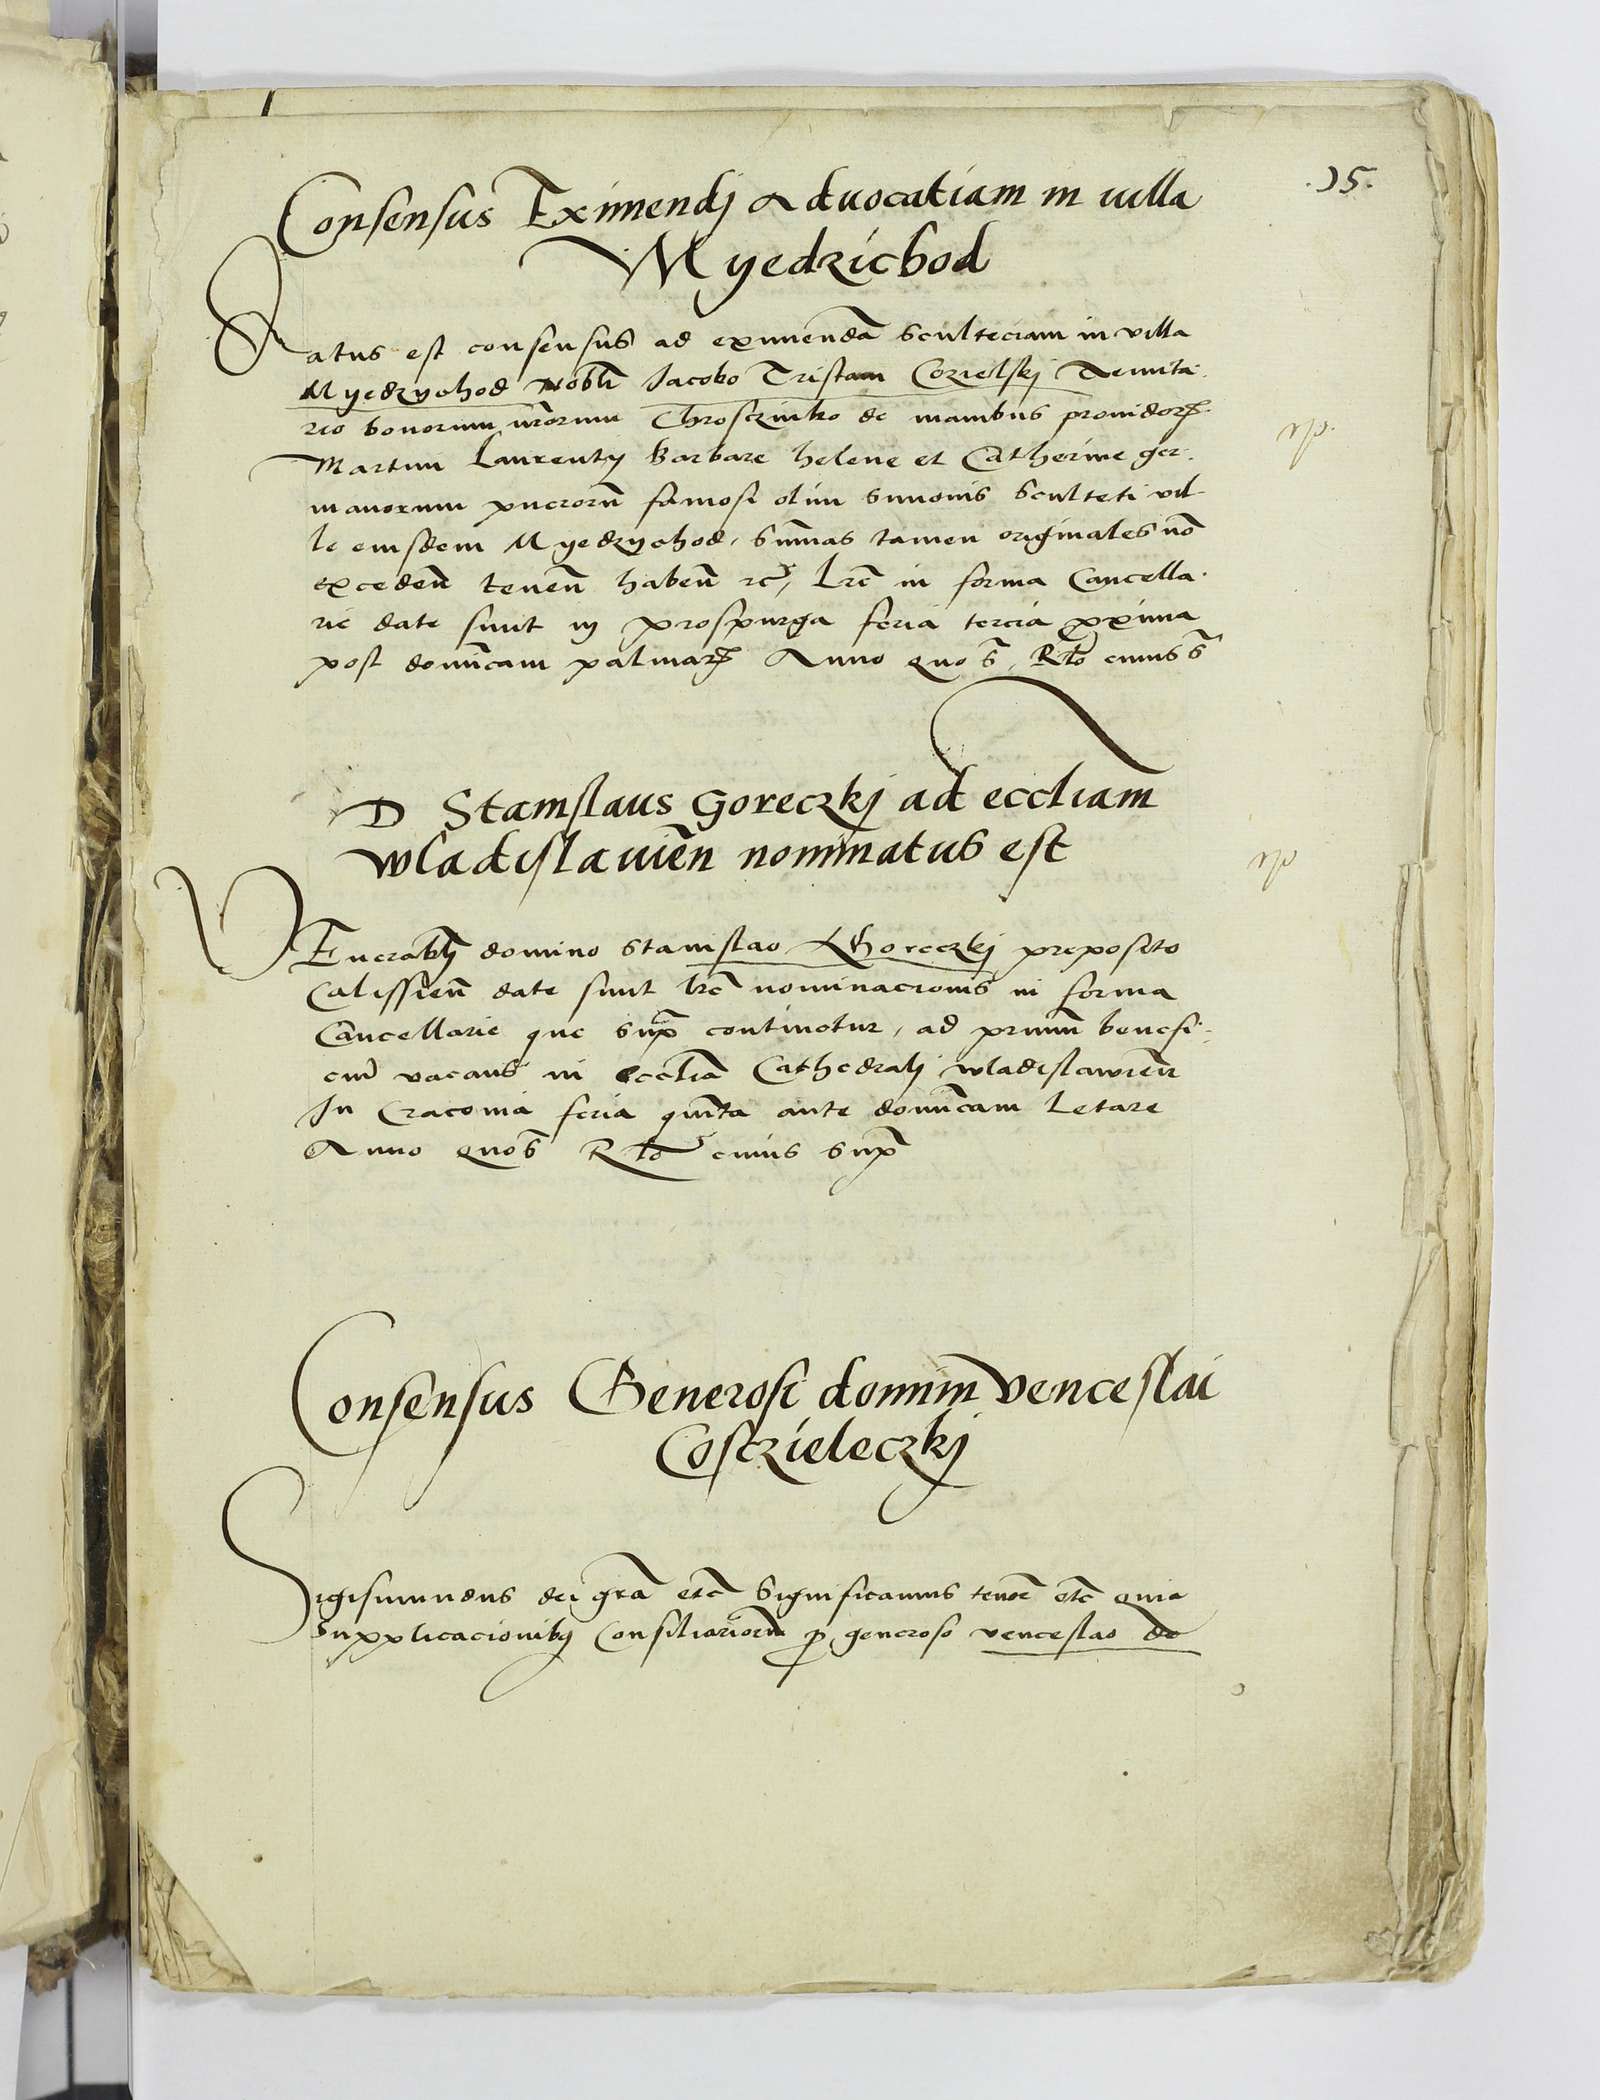 .15.
Consensus Eximendj Aduocatiam in uilla
Myedzichod
Datus est consensus ad eximendã sculteciam in villa
Myedzychod Nobli Jacobo Tristam Cozielskj Tenuta-
rio bonorum nr̃orum Chrosczinko de manibus prouidor
Martini Laurentij Barbare helene et Catherine ger-
manorum puerorũ famosi olim Simonis Sculteti vil-
le eiusdem Myedzychod, Sum̃as tamen originales nõ
exceden̄ tenen̄ haben̄ rc̃, Lrẽ in forma Cancella-
rie date sunt in prospurga feria tercia pxima
post dominĩcam palmar Anno quo s̃, Rlo cuius s̃
D Stanislaus Goreczkj ad eccliam
wladislauien̄ nominatus est
VEnerabli domino Stanislao Ghoreczkj preposito
Calissien̄ date sunt lrẽ nominacionis in forma
Cancellarie que sup̃ continetur, ad primũ benefi-
ciũ vacans in ecclia Cathedralj wladislawien̄
In Cracouia feria quĩta ante domĩcam Letare
Anno quo s̃ Rlo cuius sup̃
Consensus Generosi domini Venceslai
Cosczieleczkj
Sigismundus dei grã etc̃ Significamus tenorẽ etc̃ quia
Supplicacionibus Consiliariorũ p generoso venceslao de